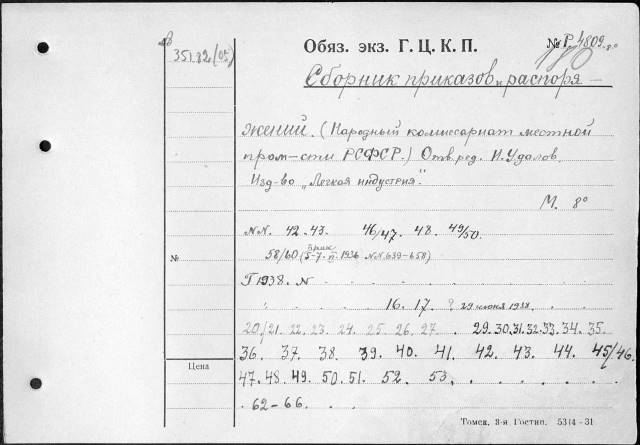 351.82(05)
Обяз. экз. Г. Ц. К. П.
№ Р. 4809. 8°
180
Сборник приказов и распоря-
жений. (Народный комиссариат местной
пром-сти РСФСР.) Отв. ред. И. Удалов.
Изд-во „Легкая индустрия".
М. 8°
NN. 42-43. 46/47. 48. 49/50.
58/60 (5-7. 1936 NN 639-658)
№
Г 1938. N
16. 17. 29 июня 1938.
20/21. 22. 23. 24. 25. 26. 27. . 29. 30. 31. 32. 33. 34. 35.
36. 37. 38. 39. 40. 41. 42. 43. 44. 45/46.
Цена
47. 48. 49. 50. 51. 52. 53.
62-66.
Томск. 3-я Гостип. 5314-31